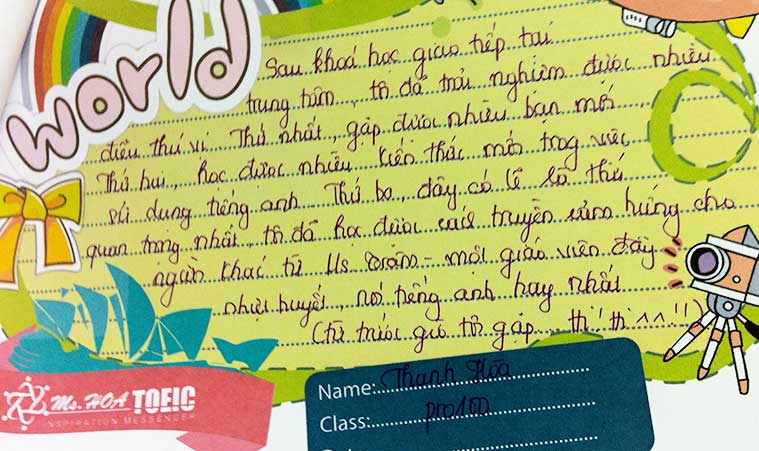 world
Sau khoá học giao tiếp tại
trung tâm, tớ đã trải nghiệm được nhiều
điều thú vị. Thứ nhất, gặp được nhiều bạn mới.
Thứ hai, học được nhiều kiến thức mới trong việc
sử dụng tiếng anh. Thứ ba, đây có lẽ là thứ
quan trọng nhất, tớ đã học được cách truyền cảm hứng cho
người khác từ Ms. - một giáo viên đầy
nhiệt huyết, nói tiếng anh hay nhất
(từ trước giờ tớ gặp thi thi ^^!!)
Ms. HOA TOEIC
INSPIRATION MESSENGER
Name: Thanh Hòa
Class: pro100